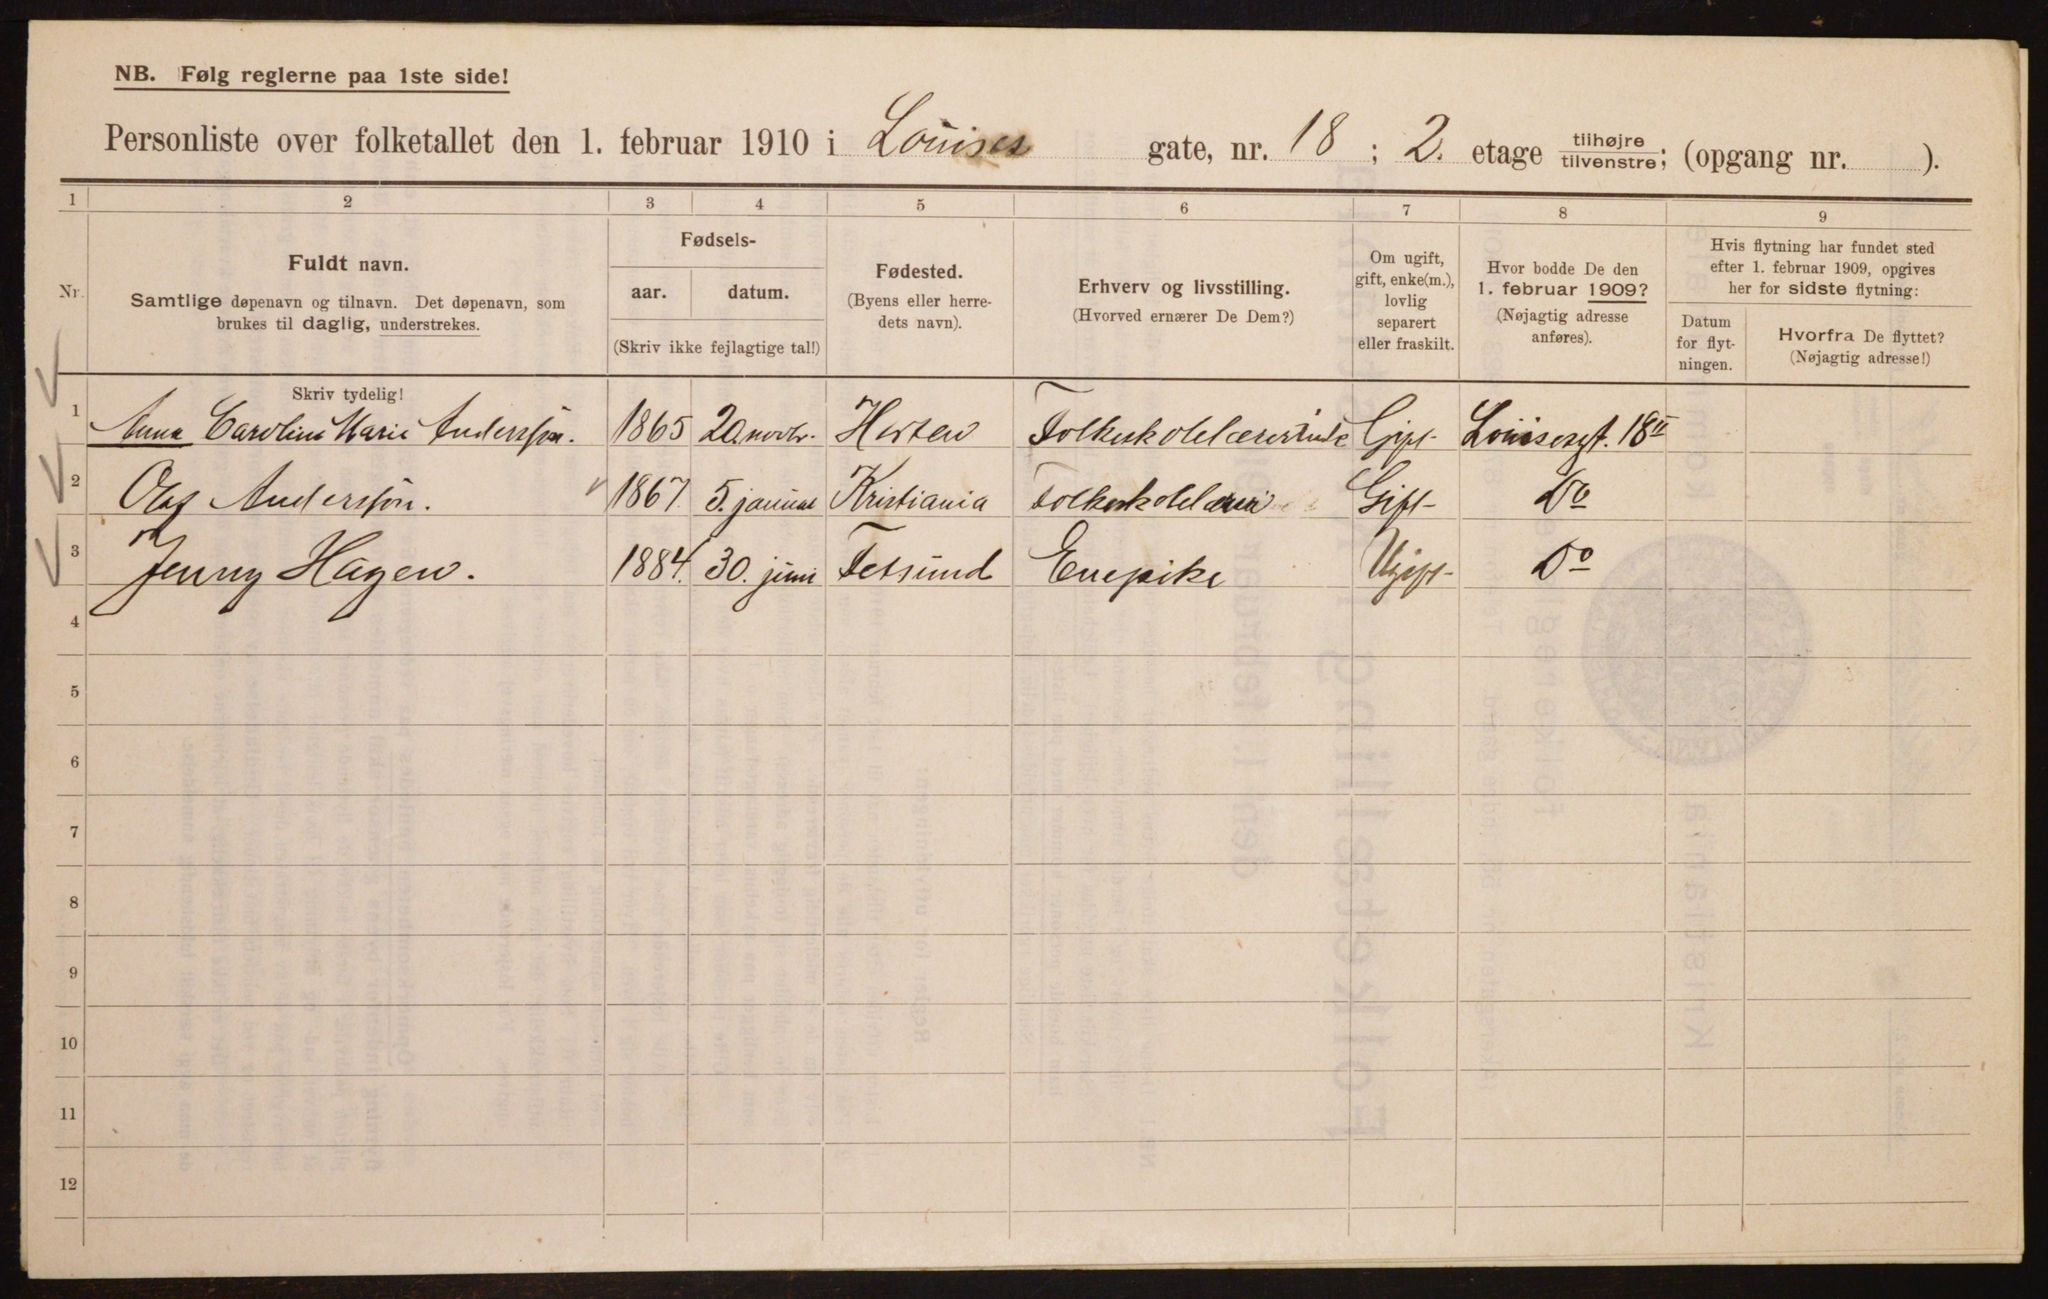 NB. Følg reglerne paa 1ste side!
Personliste over folketallet den 1. februar 1910 i Louises gate, nr. 18; 2. etage tilhøjre tilvenstre; (opgang nr. ).
1 2 3 4 5 6 7 8 9
Nr.
Fuldt navn.
Samtlige døpenavn og tilnavn. Det døpenavn, som
brukes til daglig, understrekes.
Skriv tydelig!
Fødsels-
aar. datum.
(Skriv ikke fejlagtige tal!)
Fødested.
(Byens eller herre-
dets navn).
Erhverv og livsstilling.
(Hvorved ernærer De Dem?)
Om ugift,
gift, enke(m.),
lovlig
separert
eller fraskilt.
Hvor bodde De den
1. februar 1909?
(Nøjagtig adresse
anføres).
Hvis flytning har fundet sted
efter 1. februar 1909, opgives
her for sidste flytning:
Datum
for flyt-
ningen.
Hvorfra De flyttet?
(Nøjagtig adresse!)
1 Anna Caroline Marie Anderssøn. 1865 20. novbr. Horten Folkeskolelærerinde Gift Louisesgt. 18 II
2 Olaf Anderssøn. 1867. 5. januar Kristiania Folkeskolelærer Gift Do
3 Jenny Hagen. 1884. 30. juni Fetsund Enepike Ugift Do
4
5
6
7
8
9
10
11
12